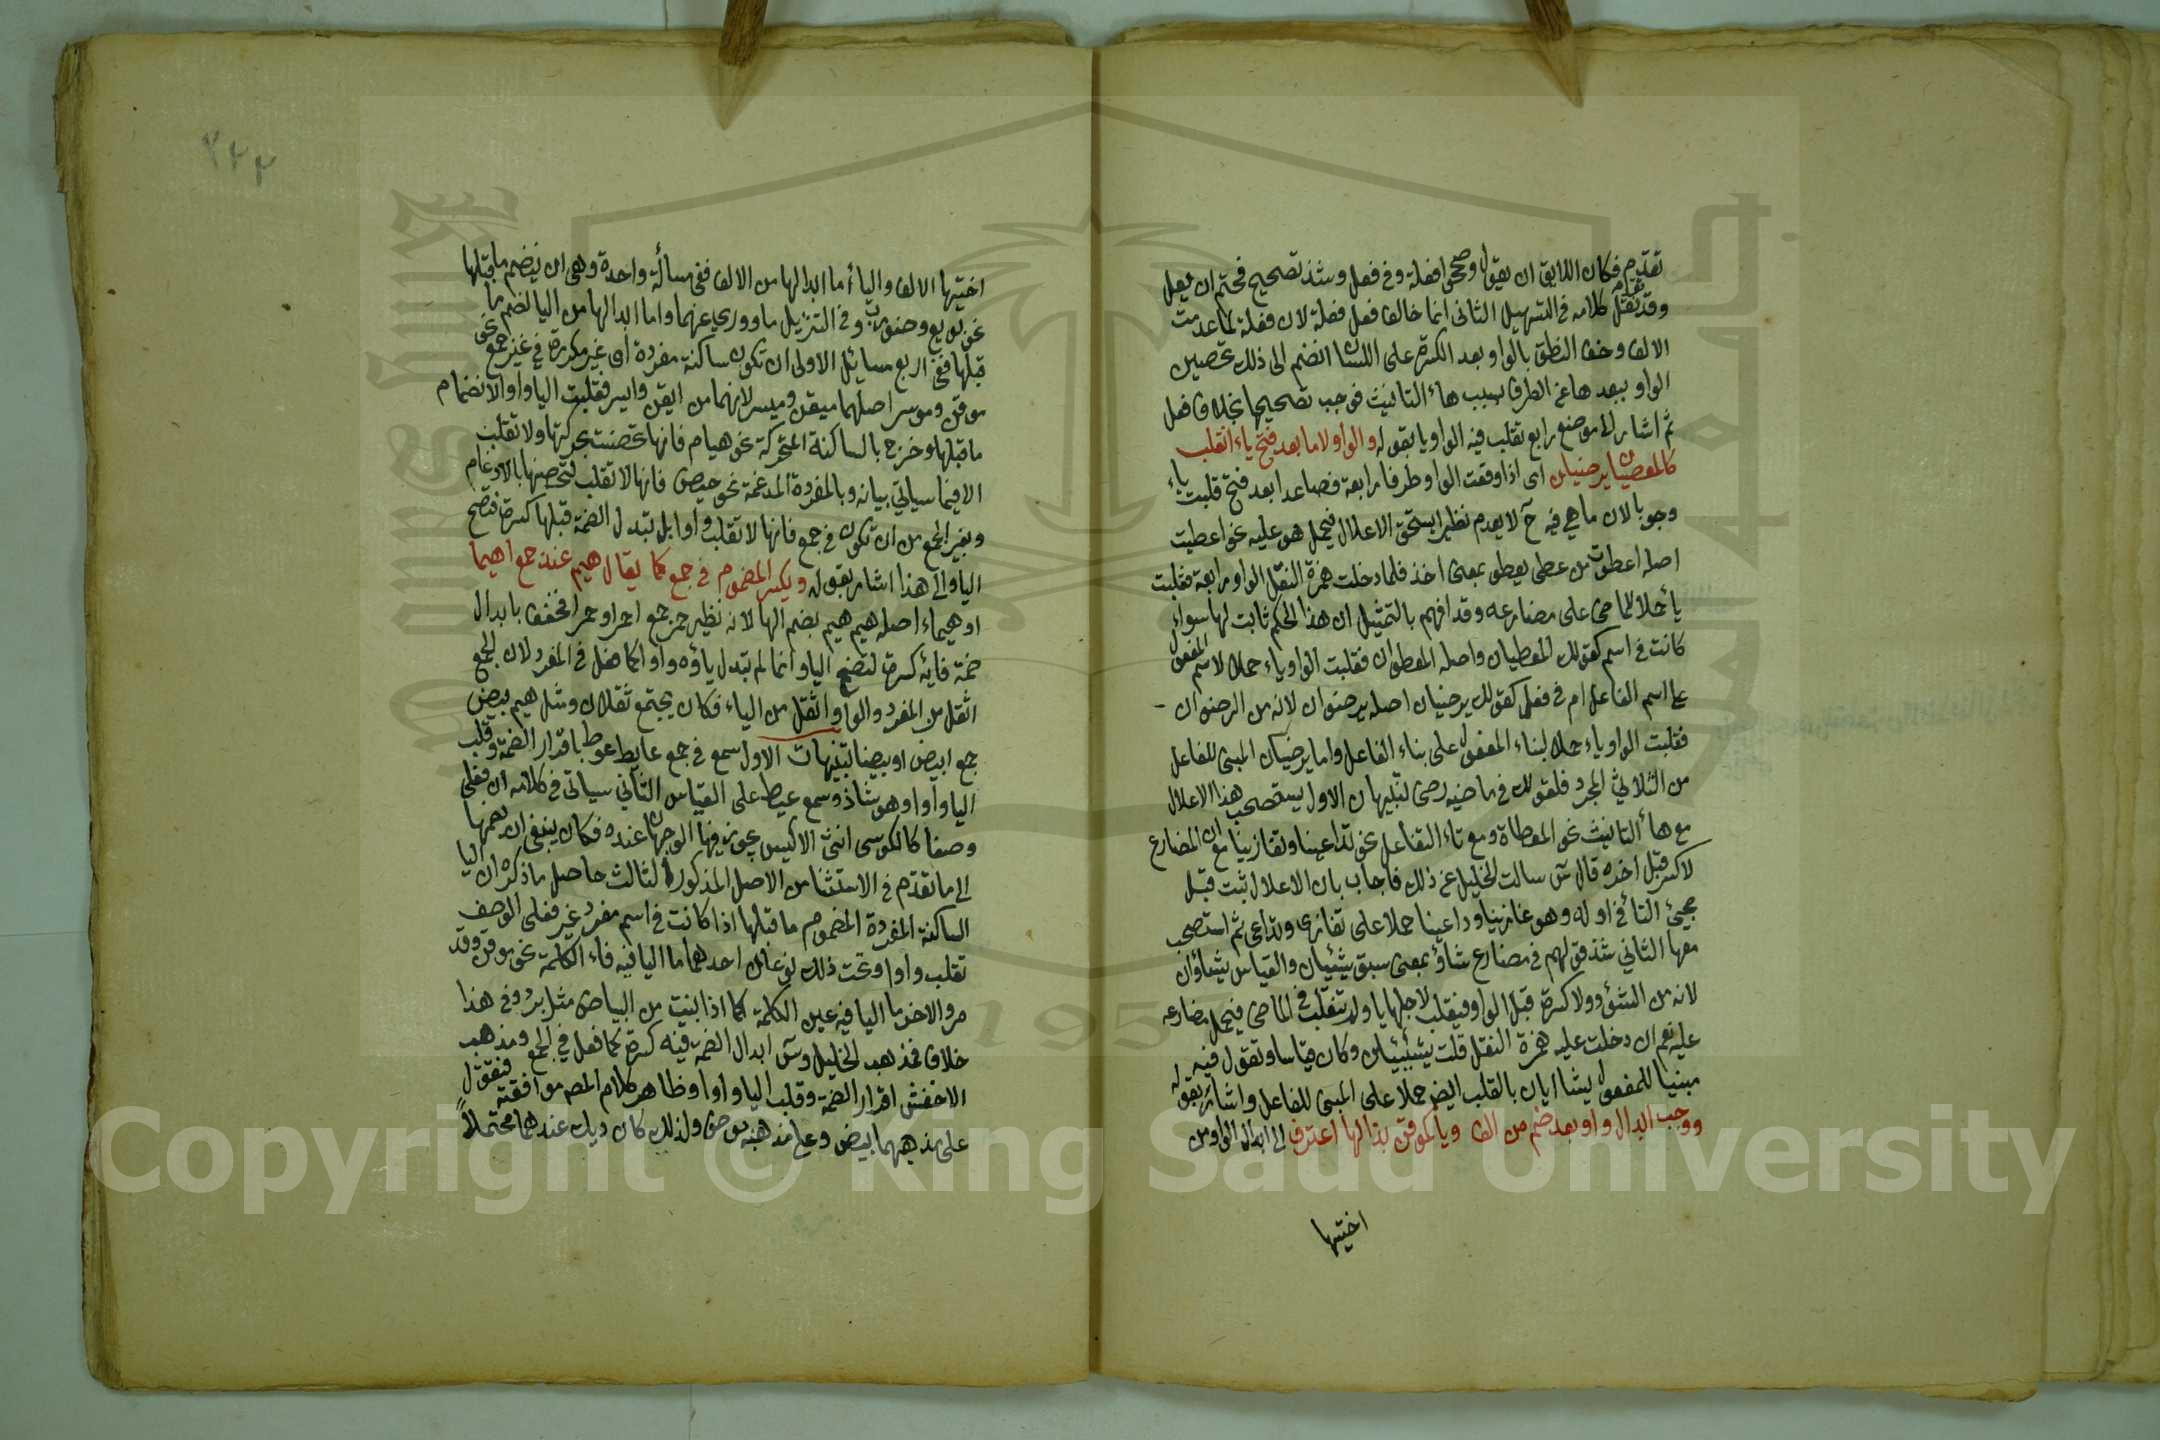 تقدم فكان اللايق ان يقول وصححوا فعلة وفي فعل وشذ تصحيح فحتم ان يعل
وقد تقدم نقل كلامه في التسهيل الثاني انما خالف فعل فعلة لان فعلة لما عدمت
الالف وخف النطق بالواو بعد الكسرة على اللسان انضم الى ذلك تحصين
الواو ببعدها عن الطرف بسبب هاء التانيث فوجب تصحيحها بخلاف فعل
ثم اشار الى موضع رابع تقلب فيه الواو يا بقوله والواو لاما بعد فتح ياء انقلب
كالمعطيان يرضيان اى اذا وقعت الواو طرفا رابعة فصاعدا بعد فتح قلبت ياء
وجوبا لان ما هي فيه ح لا يعدم نظيرا يستحق الاعلال فيحمل هو عليه نحو اعطيت
اصله اعطوت من عطى يعطو بمعنى اخذ فلما دخلت همزة النقل الواو رابعة فقلبت
يا حملا للماضى على مضارعه وقد افهم بالتمثيل ان هذا الحكم ثابت لها سواء
كانت في اسم كقولك المعطيان واصله المعطوان فقلبت الواو ياء حملا لاسم المفعول
على اسم الفاعل ام في فعل كقولك يرضيان اصله يرضوان لانه من الرضوان
فقلبت الواو ياء حملا لبناء المفعول على بناء الفاعل واما يرضيان المبنى للفاعل
من الثلاثي المجرد فلقولك في ماضيه رضى تنبيهان الاول يستصحب هذا الاعلال
مع هاء التانيث نحو المعطاة ومع تاء التفاعل نحو تداعينا وتغازينا مع ان المضارع
لا كسر قبل اخره قال س سالت الخليل عن ذلك فاجاب بان الاعلال ثبت قبل
مجيئ التاء في اوله وهو غازينا وداعينا حملا على تغازى وتداعى ثم استصحب
معها الثاني شذ قولهم في مضارع شاو بمعنى سبق يشئيان والقياس يشاوان
لانه من الشئو ولا كسرة قبل الواو فيقلب لاجلها يا ولم تنقلب في الماضى فيحمل مضارعه
عليه نعم ان دخلت عليه همزة النقل قلت يشئيان وكان قياسا وتقول فيه
مبنيا للمفعول يشاايان بالقلب ايض حملا على المبنى للفاعل واشار بقوله
ووجب ابدال واو بعد ضم من الف ويا كموقن بذا لها اعترف الى ابدال الواو من
اختيها
٢٢٣
اختيها الالف واليا أما ابدالها من الالف ففي مسألة واحدة وهى ان ينضم ما قبلها
نحو بويع وضورب وفي التنزيل ما ووري عنهما واما ابدالها من اليا لضم ما
قبلها ففي اربع مسائل الاولى ان تكون ساكنة مفردة اى غير مكررة في غير جمع نحو
موقن وموسر اصلهما ميقن وميسر لانهما من ايقن وايسر فقلبت اليا واوا لانضمام
ما قبلها وخرج بالساكنة المتحركة نحو هيام فانها تحصنت بحركتها ولا تقلب
الا فيما سياتي بيانه وبالمفردة المدغمة نحو حيض فانها لا تقلب لتحصنها بالادغام
وبغير الجمع من ان تكون في جمع فانها لا تقلب واوا بل تبدل الضمة قبلها كسرة فتصح
اليا والى هذا اشار بقوله ويكسر المضموم في جمع كما يقال هيم عند جمع اهيما
او هيماء اصله هيم هيم بضم الها لانه نظير حمر جمع احمر او حمرا فخفف بابدال
ضمة فائه كسرة لتصح اليا وانما لم تبدل ياؤه واوا كما فعل في المفرد لان الجمع
اثقل من المفرد والواو اثقل من الياء فكان يجتمع ثقلان ومثل هيم بيض
جمع ابيض او بيضا تنبيهات الاول سمع في جمع عايط عوط باقرار الضمة وقلب
اليا واوا وهو شاذ وسمع عيط على القياس الثاني سياتى في كلامه ان فعلى
وصفا كالكوسى انثى الاكيس يجوز فيها الوجهان عنده فكان ينبغى ان يضمها
الى ما تقدم في الاستثنا من الاصل المذكور الثالث حاصل ما ذكره ان اليا
الساكنة المفردة المضموم ما قبلها اذا كانت في اسم مفرد غير فعلى الوصف
تقلب واوا وتحت ذلك نوعان احدهما ما اليا فيه فاء الكلمة نحو موقن وقد
مر والاخر ما اليا فيه عين الكلمة كما اذا بنيت من البياض مثل برد وفي هذا
خلاف فمذهب الخليل وس ابدال الضمة فيه كسرة كما فعل في الجمع ومذهب
الاخفش اقرار الضمة وقلب اليا واوا وظاهر كلام المصم موافقته فنقول
على مذهبهما بيض وعلى مذهبه بوض ولذلك كان ديك عندهما محتملاً